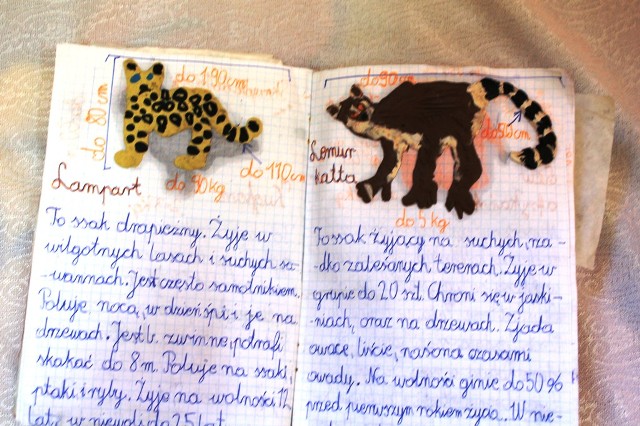 do 190cm
do 80 cm
do 110cm
do 90 kg
Lampart
To ssak drapieżny. Żyje w
wilgotnych lasach i suchych sa-
-wannach. Jest często samotnikiem.
Poluje nocą, w dzień śpi i je na
drzewach. Jest b. zwinne, potrafi
skakać do 8m. Poluje na ssaki,
ptaki i ryby. Żyje na wolności 12
lat, w niewoli do 25 lat.
do 50cm
do 5 kg
Lemur
katta
To ssak żyjący na suchych, rza-
-dko zalesianych terenach. Żyje w
grupie do 20 szt. Chroni się w jaski-
-niach, oraz na drzewach. Zjada
owoce, liście, nasiona czasami
owady. Na wolności ginie do 50%
przed pierwszym rokiem życia. W nie-